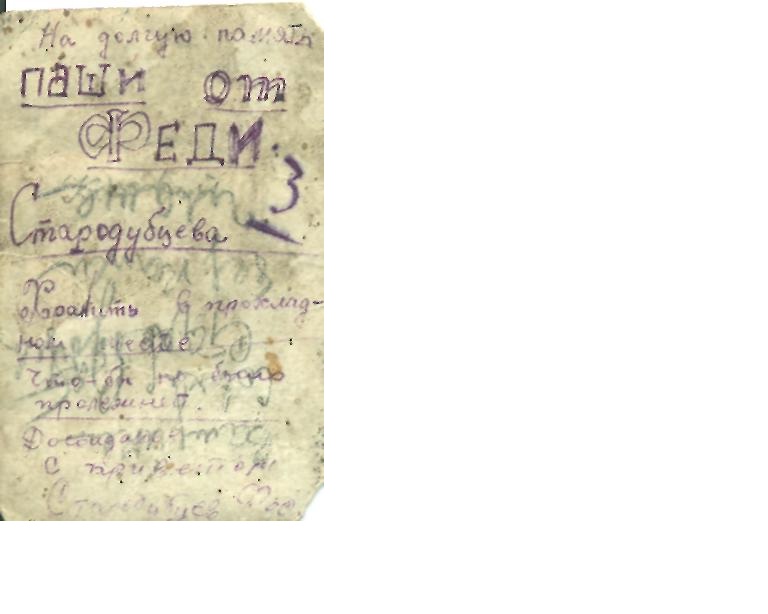 На долгую память
Паши от
Феди.
3
Стародубцева
Хранить в прохлад-
ном месте
Что-бы не было
пролежней.
Досвидание
С приветом
Стародубцев Фед.